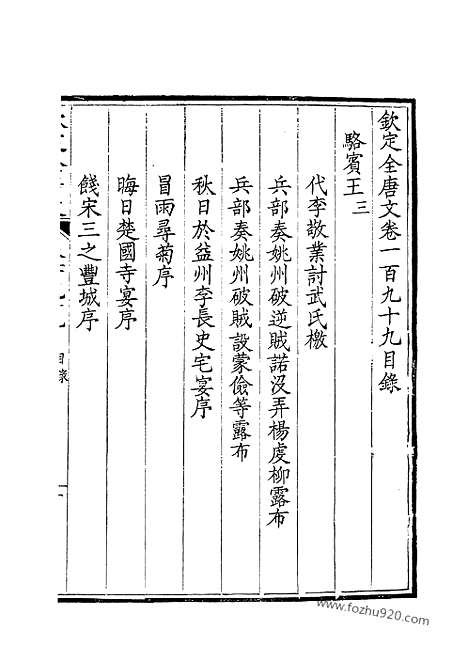 欽定全唐文卷一百九十九目錄
駱賓王三
代李敬業討武氏檄
兵部奏姚州破逆賊諾沒弄楊虔柳露布
兵部奏姚州破賊設蒙儉等露布
秋日於益州李長史宅宴序
冒雨尋菊序
晦日楚國寺宴序
餞宋三之豐城序
目錄
www.fozhu920.com